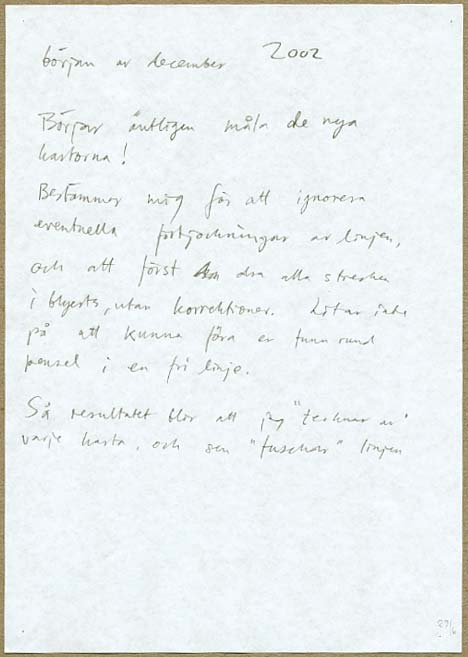 början av december 2002
Börjar äntligen måla de nya
kartorna!
Bestämmer mig för att ignorera
eventuella förtjockningar av linjen,
och att först dra alla strecken
i blyerts, utan korrektioner. Litar inte
på att kunna föra en tunn rund
pensel i en fri linje.
Så resultatet blir att jag "tecknar av"
varje karta, och sen "tuschar" linjen